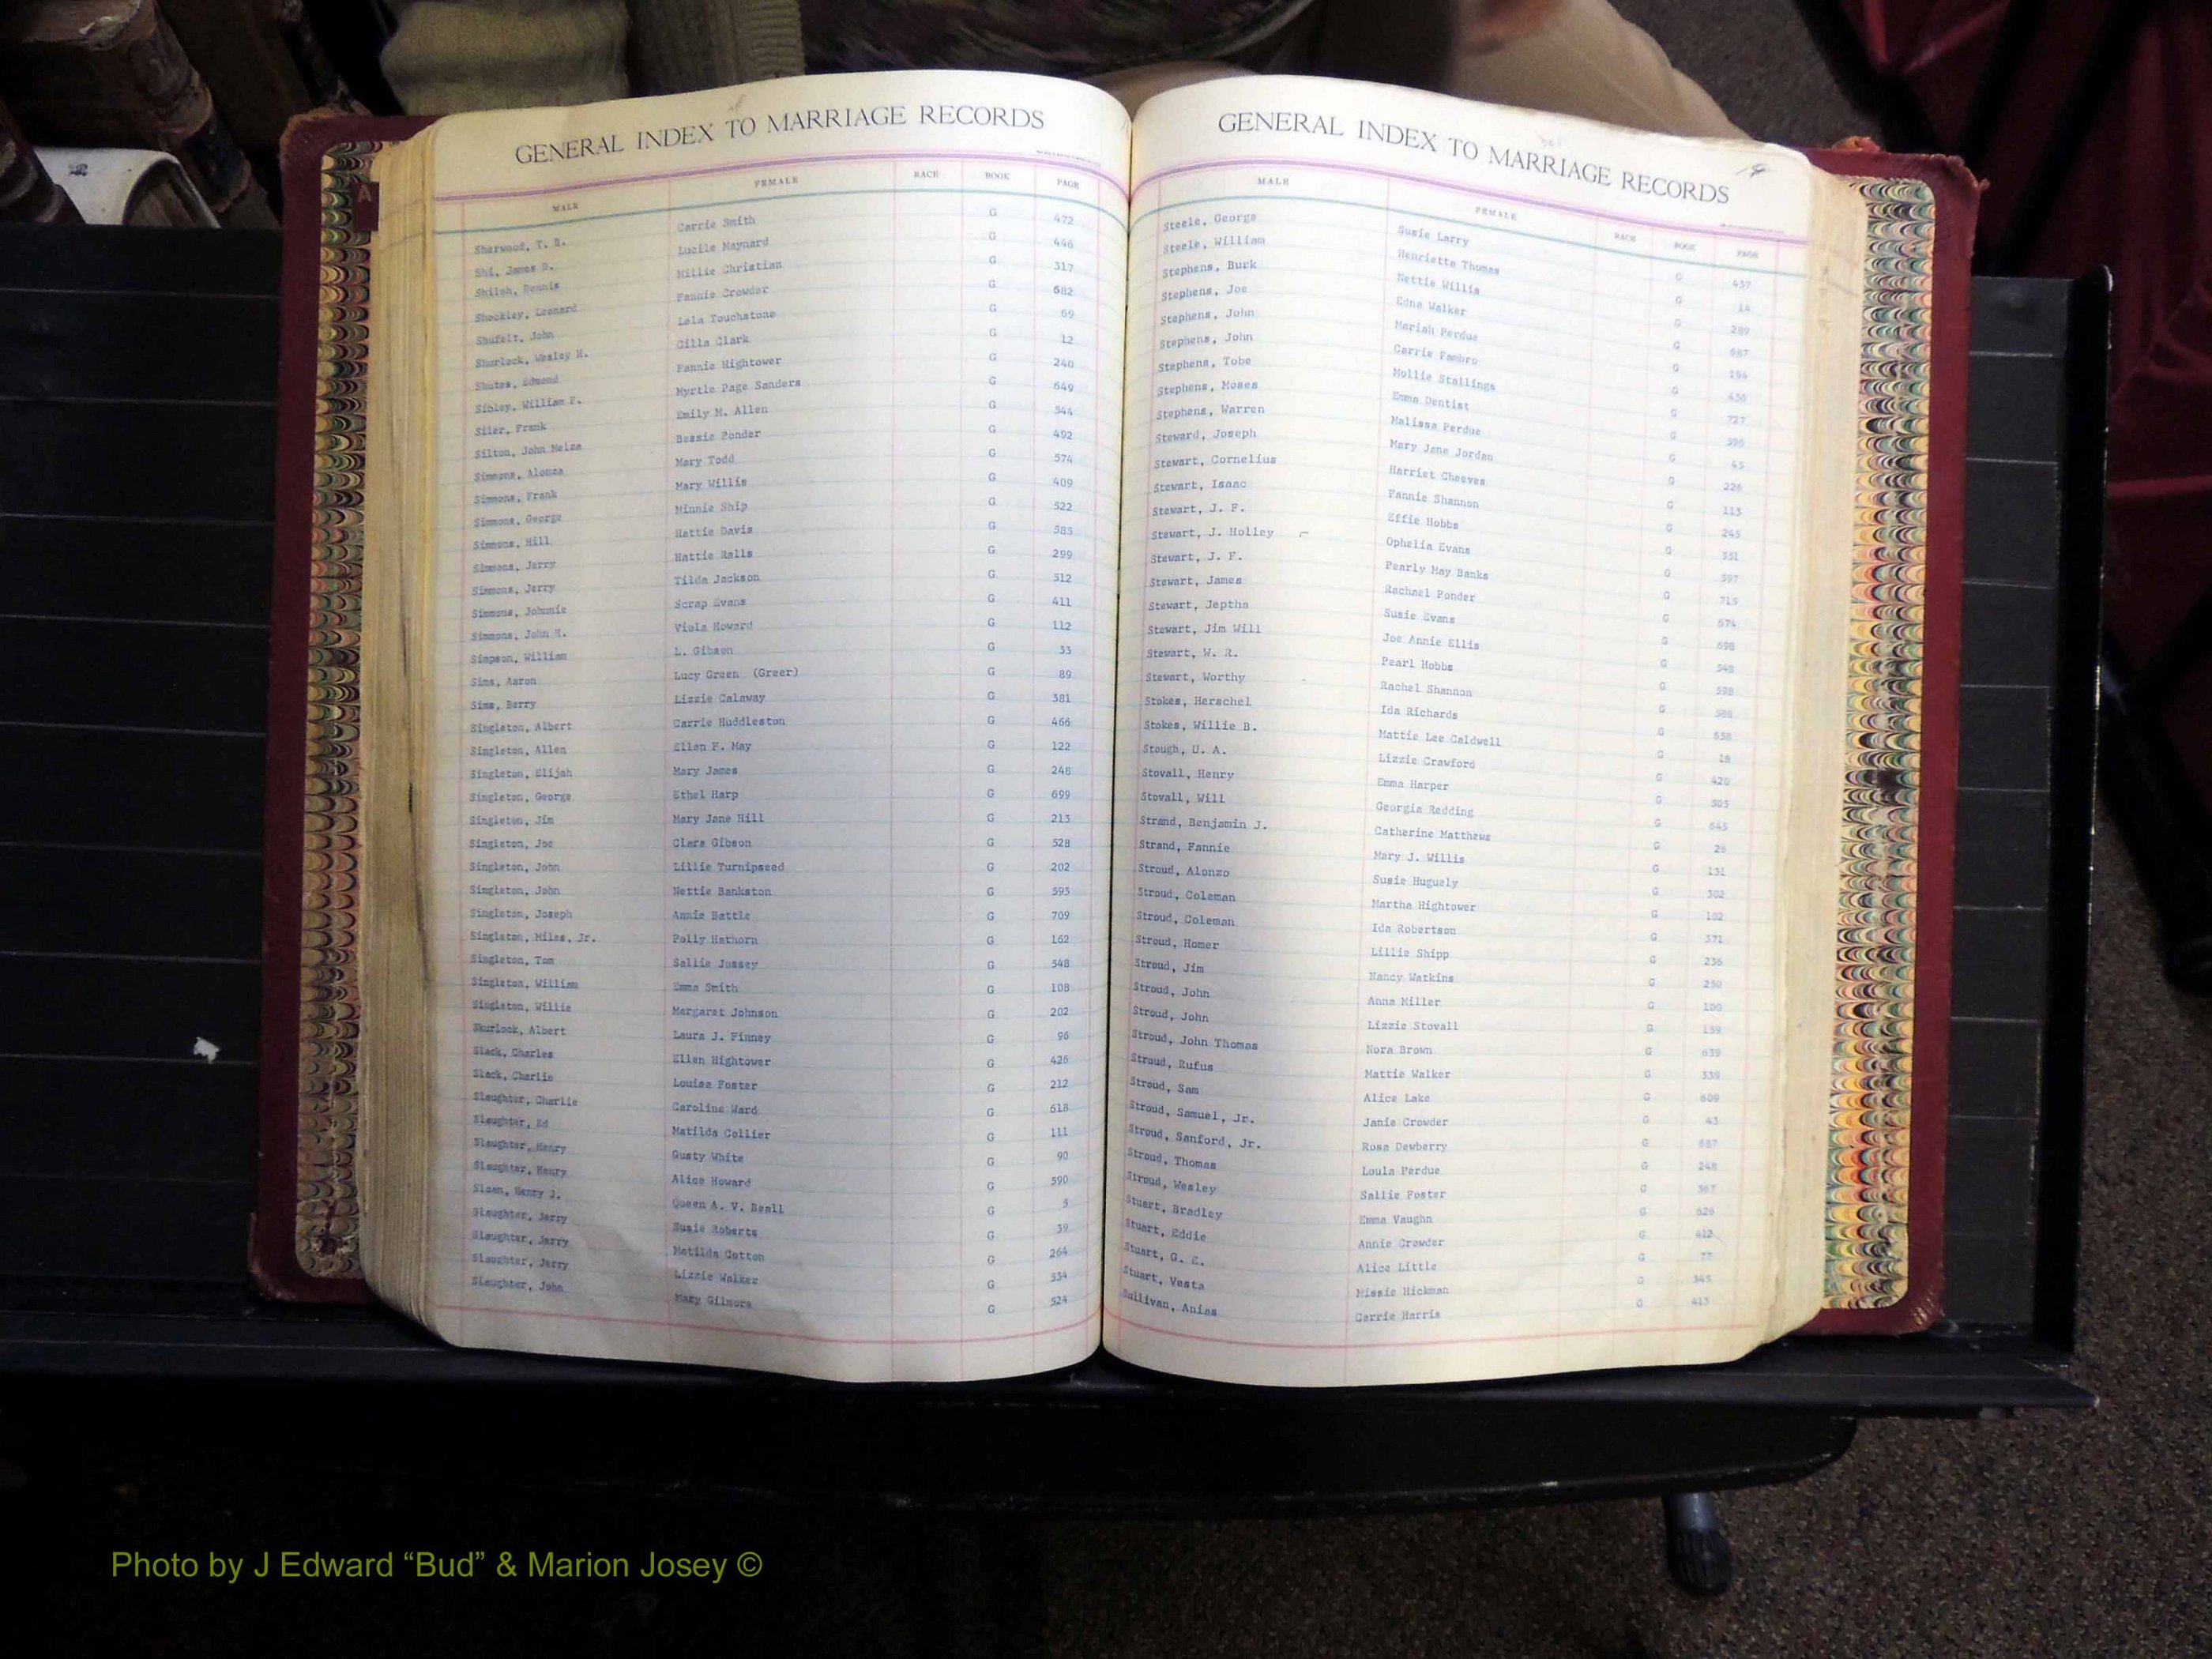 GENERAL INDEX TO MARRIAGE RECORDS
MALE FEMALE RACE BOOK PAGE
Sherwood, T. B. Carrie Smith G 472
Shi, James D. Lucile Maynard G 446
Shiloh, Dennis Millie Christian G 317
Shockley, Leonard Fannie Crowder G 682
Shufelt, John Lela Touchstone G 69
Shurlock, Wesley H. Cilla Clark G 12
Shutes, Edmond Fannie Hightower G 240
Sibley, William F. Myrtle Page Sanders G 649
Siler, Frank Emily M. Allen G 544
Silton, John Melza Bessie Ponder G 492
Simmons, Alonza Mary Todd G 574
Simmons, Frank Mary Willis G 409
Simmons, George Minnie Ship G 522
Simmons, Hill Hattie Davis G 583
Simmons, Jerry Hattie Ralls G 299
Simmons, Jerry Tilda Jackson G 512
Simmons, Johnnie Scrap Evans G 411
Simmons, John H. Viola Howard G 112
Simpson, William L. Gibson G 33
Sims, Aaron Lucy Green (Greer) G 89
Sims, Berry Lizzie Calaway G 381
Singleton, Albert Carrie Huddleston G 466
Singleton, Allen Ellen F. May G 122
Singleton, Elijah Mary James G 248
Singleton, George Ethel Harp G 699
Singleton, Jim Mary Jane Hill G 213
Singleton, Joe Clara Gibson G 528
Singleton, John Lillie Turnipseed G 202
Singleton, John Nettie Bankston G 593
Singleton, Joseph Annie Battle G 709
Singleton, Miles, Jr. Polly Hathorn G 162
Singleton, Tom Sallie Jossey G 548
Singleton, William Emma Smith G 108
Singleton, Willie Margaret Johnson G 202
Skurlock, Albert Laura J. Finney G 96
Slack, Charles Ellen Hightower G 426
Slack, Charlie Louisa Foster G 212
Slaughter, Charlie Caroline Ward G 618
Slaughter, Ed Matilda Collier G 111
Slaughter, Henry Gusty White G 90
Slaughter, Henry Alice Howard G 590
Sloan, Henry J. Queen A. V. Beall G 5
Slaughter, Jerry Susie Roberts G 39
Slaughter, Jerry Matilda Cotton G 264
Slaughter, Jerry Lizzie Walker G 334
Slaughter, John Mary Gilmore G 524
GENERAL INDEX TO MARRIAGE RECORDS
MALE FEMALE RACE BOOK PAGE
Steele, George Susie Larry G 457
Steele, William Henrietta Thomas G 14
Stephens, Burk Nettie Willis G 289
Stephens, Joe Edna Walker G 687
Stephens, John Mariah Perdue G 194
Stephens, John Carrie Fambro G 456
Stephens, Tobe Mollie Stallings G 727
Stephens, Moses Emma Dentist G 396
Stephens, Warren Malissa Perdue G 45
Steward, Joseph Mary Jane Jordan G 226
Stewart, Cornelius Harriet Cheeves G 113
Stewart, Isaac Fannie Shannon G 245
Stewart, J. F. Effie Hobbs G
Stewart, J. Holley Ophelia Evans G 597
Stewart, J. F. Pearly May Banks G 715
Stewart, James Rachael Ponder G 674
Stewart, Jeptha Susie Evans G 698
Stewart, Jim Will Joe Annie Ellis G 548
Stewart, W. R. Pearl Hobbs G 598
Stewart, Worthy Rachel Shannon G 588
Stokes, Herschel Ida Richards G 658
Stokes, Willie B. Mattie Lee Caldwell G 18
Stough, U. A. Lizzie Crawford G 420
Stovall, Henry Emma Harper G 505
Stovall, Will Georgia Redding G 645
Strand, Benjamin J. Catherine Matthews G 26
Strand, Fannie Mary J. Willis G 131
Stroud, Alonzo Susie Huguely G 302
Stroud, Coleman Martha Hightower G 102
Stroud, Coleman Ida Robertson G 371
Stroud, Homer Lillie Shipp G 236
Stroud, Jim Nancy Watkins G 230
Stroud, John Anna Miller G 100
Stroud, John Lizzie Stovall G 159
Stroud, John Thomas Nora Brown G 639
Stroud, Rufus Mattie Walker G 339
Stroud, Sam Alice Lake G 609
Stroud, Samuel, Jr. Janie Crowder G 43
Stroud, Sanford, Jr. Rosa Dewberry G 687
Stroud, Thomas Loula Perdue G 248
Stroud, Wesley Sallie Foster G 367
Stuart, Bradley Emma Vaughn G 626
Stuart, Eddie Annie Crowder G 412
Stuart, G. C. Alice Little G 77
Stuart, Vesta Missie Hickman G 345
Sullivan, Anias Carrie Harris G 413
Photo by J Edward “Bud” & Marion Josey ©